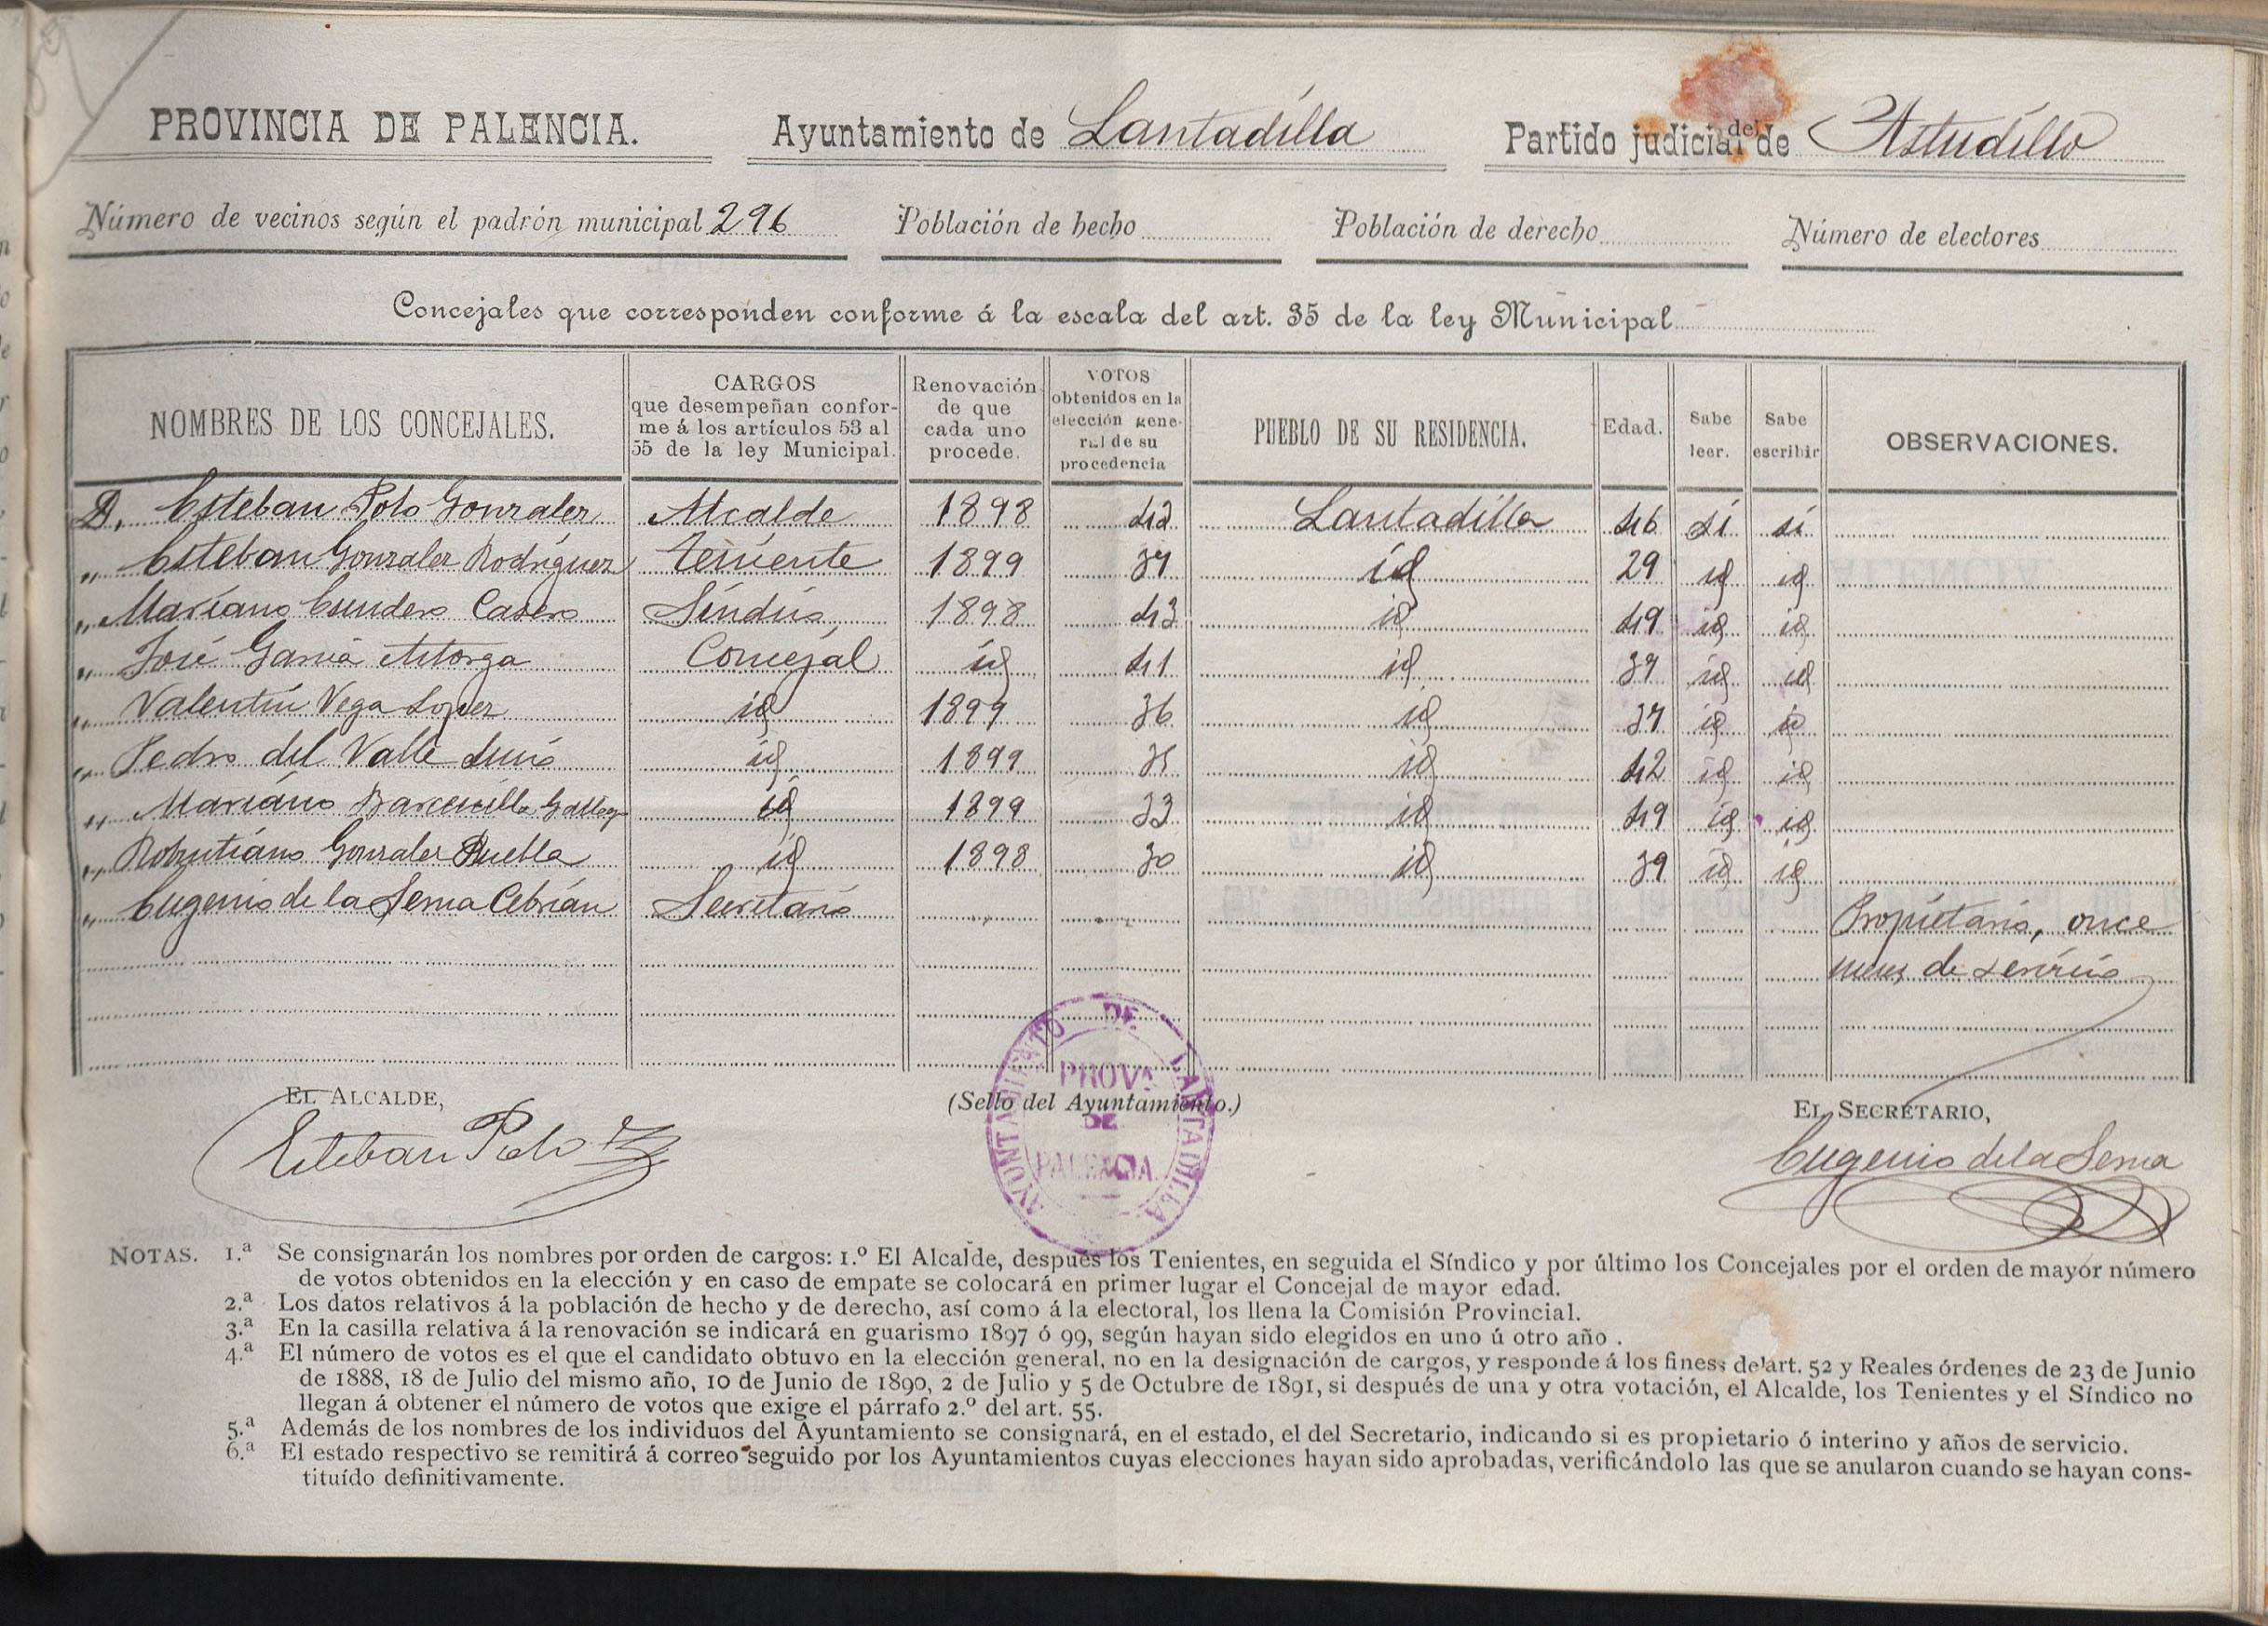 PROVINCIA DE PALENCIA. Ayuntamiento de Lantadilla Partido judicial de Astudillo
Número de vecinos según el padrón municipal 296 Población de hecho Población de derecho Número de electores
Concejales que corresponden conforme á la escala del art. 35 de la ley Municipal
NOMBRES DE LOS CONCEJALES. CARGOS que desempeñan conforme á los artículos 53 al 55 de la ley Municipal. Renovación de que cada uno procede. VOTOS obtenidos en la elección general de su procedencia PUEBLO DE SU RESIDENCIA. Edad. Sabe leer. Sabe escribir OBSERVACIONES.
D. Esteban Polo Gonzalez Alcalde 1898 42 Lantadilla 46 si si
" Esteban Gonzalez Rodriguez Teniente 1899 37 id 29 id id
" Mariano Escudero Casero Síndico 1898 43 id 49 id id
" José Garcia Astorga Concejal id 41 id 37 id id
" Valentín Vega Lopez id 1899 36 id 37 id id
" Pedro del Valle id 1899 35 id 42 id id
" Mariano Barcenilla Gallego id 1899 33 id 49 id id
" Robustiano Gonzalez Puebla id 1898 30 id 39 id id
" Eugenio de la Serna Cebrián Secretario Propietario, once
meses de servicio
EL ALCALDE, (Sello del Ayuntamiento.) EL SECRETARIO,
AYUNTAMIENTO DE LANTADILLA
PROVA
DE
PALENCIA
Esteban Polo Eugenio de la Serna
NOTAS. 1.ª Se consignarán los nombres por orden de cargos: 1.º El Alcalde, después los Tenientes, en seguida el Síndico y por último los Concejales por el orden de mayor número
de votos obtenidos en la elección y en caso de empate se colocará en primer lugar el Concejal de mayor edad.
2.ª Los datos relativos á la población de hecho y de derecho, así como á la electoral, los llena la Comisión Provincial.
3.ª En la casilla relativa á la renovación se indicará en guarismo 1897 ó 99, según hayan sido elegidos en uno ú otro año .
4.ª El número de votos es el que el candidato obtuvo en la elección general, no en la designación de cargos, y responde á los fines del art. 52 y Reales órdenes de 23 de Junio
de 1888, 18 de Julio del mismo año, 10 de Junio de 1890, 2 de Julio y 5 de Octubre de 1891, si después de una y otra votación, el Alcalde, los Tenientes y el Síndico no
llegan á obtener el número de votos que exige el párrafo 2.º del art. 55.
5.ª Además de los nombres de los individuos del Ayuntamiento se consignará, en el estado, el del Secretario, indicando si es propietario ó interino y años de servicio.
6.ª El estado respectivo se remitirá á correo seguido por los Ayuntamientos cuyas elecciones hayan sido aprobadas, verificándolo las que se anularon cuando se hayan cons-
tituído definitivamente.